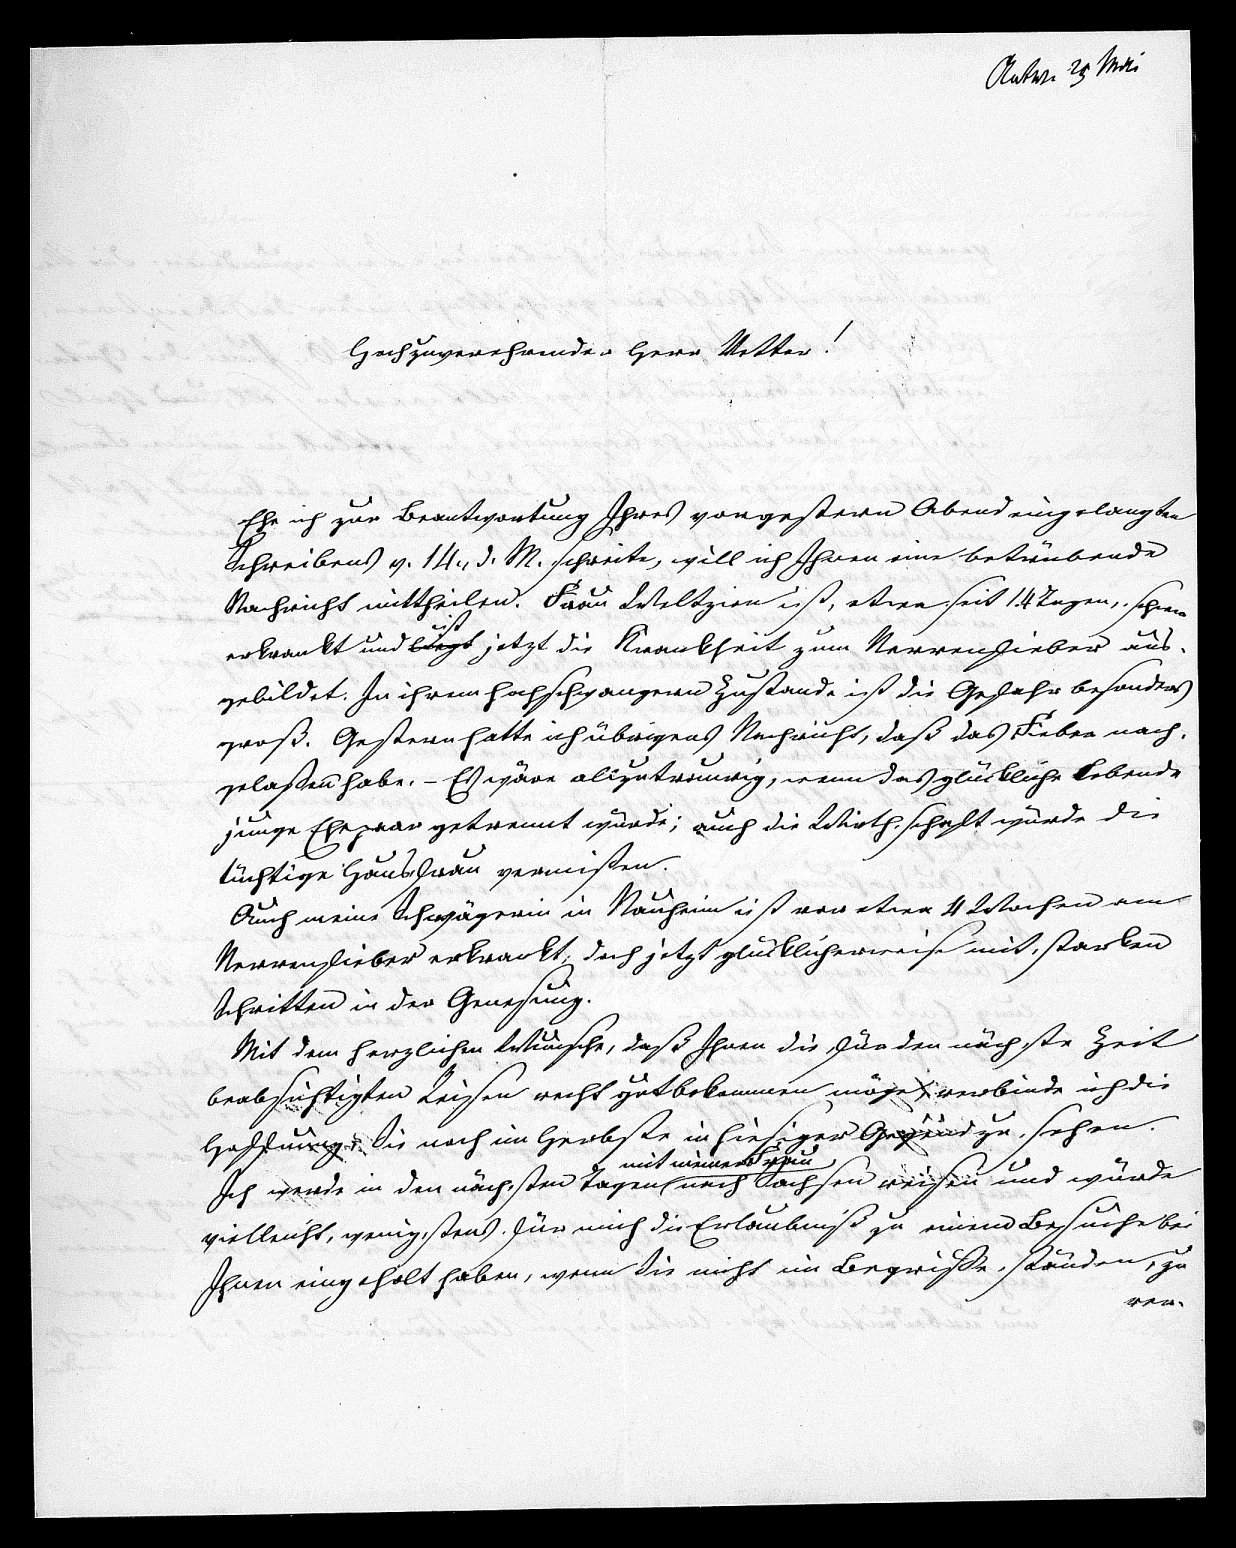 Antw. 25 Mai
Hochzuverehrender Herr Vetter!
Ehe ich zur Beantwortung Ihres vorgestern Abend eingelangten
Schreibens v. 14. d. M. schreite, will ich Ihnen eine betrübende
Nachricht mittheilen. Frau Weltzien ist, etwa seit 14 Tagen, schwer
erkrankt und liegt ist jetzt die Krankheit zum Nervenfieber aus-
gebildet. In ihrem hochschwangern Zustande ist die Gefahr besonders
groß. Gestern hatte ich übrigens Nachricht, daß das Fieber nach-
gelaßen habe. – Es wäre allzutraurig, wenn das glücklich lebende
junge Ehepaar getrennt würde; auch die Wirthschaft würde die
tüchtige Hausfrau vermißen.
Auch meine Schwägerin in Nauheim ist vor etwa 4 Wochen am
Nervenfieber erkrankt, doch jetzt glücklicherweise mit starken
Schritten in der Genesung.
Mit dem herzlichen Wunsche, daß Ihnen die für den nächste Zeit
beabsichtigten Reisen recht gut bekommen möge verbinde ich die
Hoffnung, Sie noch im Herbste in hiesiger Gegend zu sehen.
mit meiner Frau
Ich werde in den nächsten Tagen nach Sachsen reisen und würde
vielleicht, wenigstens für mich die Erlaubniß zu einem Besuche bei
Ihnen eingeholt haben, wenn Sie nicht im Begriffe ständen, zu
ver-